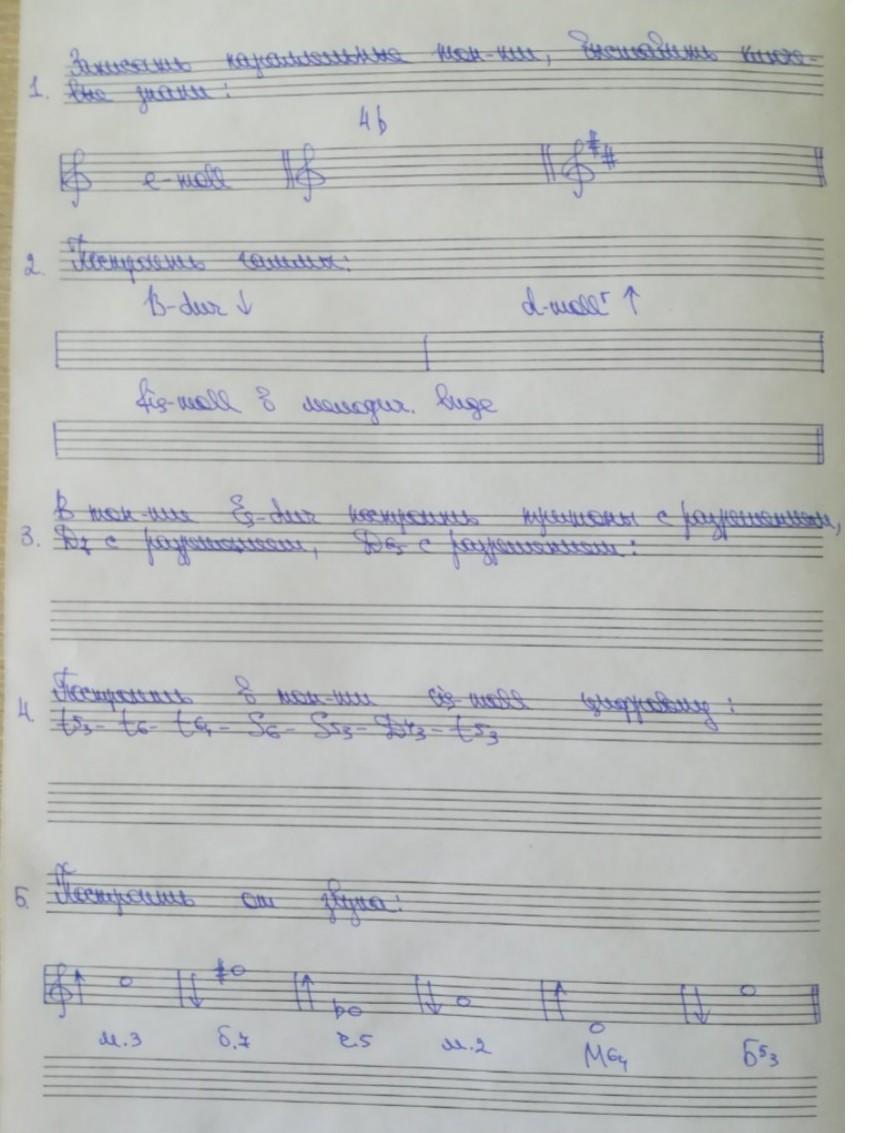 Записать параллельные тон-ти, выставить ключе-
1. вые знаки:
4♭
e-moll
2. Построить гаммы:
B-dur ↓ d-moll г ↑
fis-moll в мелодич. виде
В тон-ти Es-dur построить тритоны с разрешением,
3. D7 с разрешением, D65 с разрешением:
Построить в тон-ти cis-moll цифровку:
4. t53 - t6 - t64 - S6 - S53 - D43 - t53
5. Построить от звука:
м.3 б.7 ч.5 м.2 М64 Б53